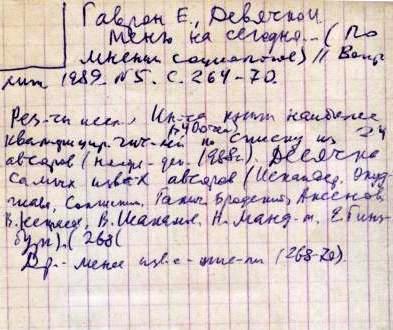 Гаврон Е., Девяткой
меню на сегодня... (По
мнению социологов) // Вопр
лит 1989. N5. С. 264-70.
Рез-ты иссл., Ин-та книги наиболее
квалифицир. чит-лей по списку из 24
(>400 чел)
авторов (ноябрь-дек. 1988г). Десятка
самых изв-х авторов (Искандер, Окуд-
жава, Солженицын, Галич Бродский, Аксенов
В. Некрасов, В. Шаламов, Н. Манд-м, Е. Гинз-
бург). (268(
Др. - менее изв-е пис-ли (268-70).